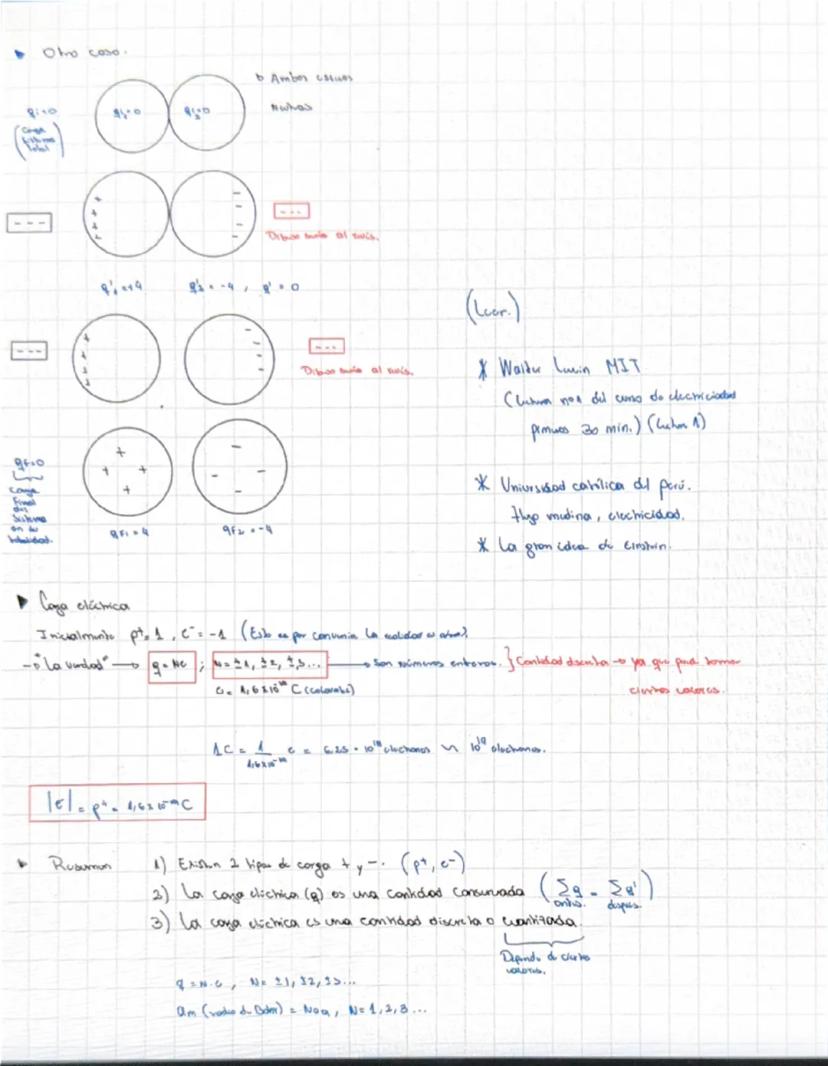 ▶ Otro caso.
▷ Ambos esferas
neutras
qi=0
(Carga
sistema
total)
qi₁=0 qi₂=0
+ + + +
- - - -
---
---
Dibuo más al raís.
q'₁=+4 q'₂=-4, q'=0
---
+ + + +
- - - -
---
Dibuo más al raís.
+ + + +
- - - -
qf=0
Carga
Final
del
Sistema
en su
totalidad.
qF₁=4 qF₂=-4
(Leer.)
* Walter Lewin MIT
(Lectura nº1 del curso de electricidad
primeros 30 min.) (Lectur 1)
* Universidad católica del perú.
Hugo medina, electricidad.
* La gran idea de Einstein.
▶ Carga eléctrica
Inicialmente p⁺=1, e⁻=-1 (Esto es por convenio la realidad es otra).
"La verdad" → q=Ne ; N=±1, ±2, ±3... → Son números enteros. } Cantidad discreta → ya que puede tomar
ciertos valores.
e=1,6x10⁻¹⁹ C (coulombs)
1C = 1/1,6x10⁻¹⁹ e = 6.25 · 10¹⁸ electrones ~ 10¹⁹ electrones.
|e|=p⁺=1,6x10⁻¹⁹C
▶ Resumen 1) Existen 2 tipos de carga + y -. (p⁺, e⁻)
2) La carga eléctrica (q) es una cantidad conservada (∑q = ∑q')
antes. despues.
3) La carga eléctrica es una cantidad discreta o cuantizada.
Depende de ciertos
valores.
q=N.e, N=±1, ±2, ±3...
an (radio de Bohr) = N∘a, N=1,2,3...